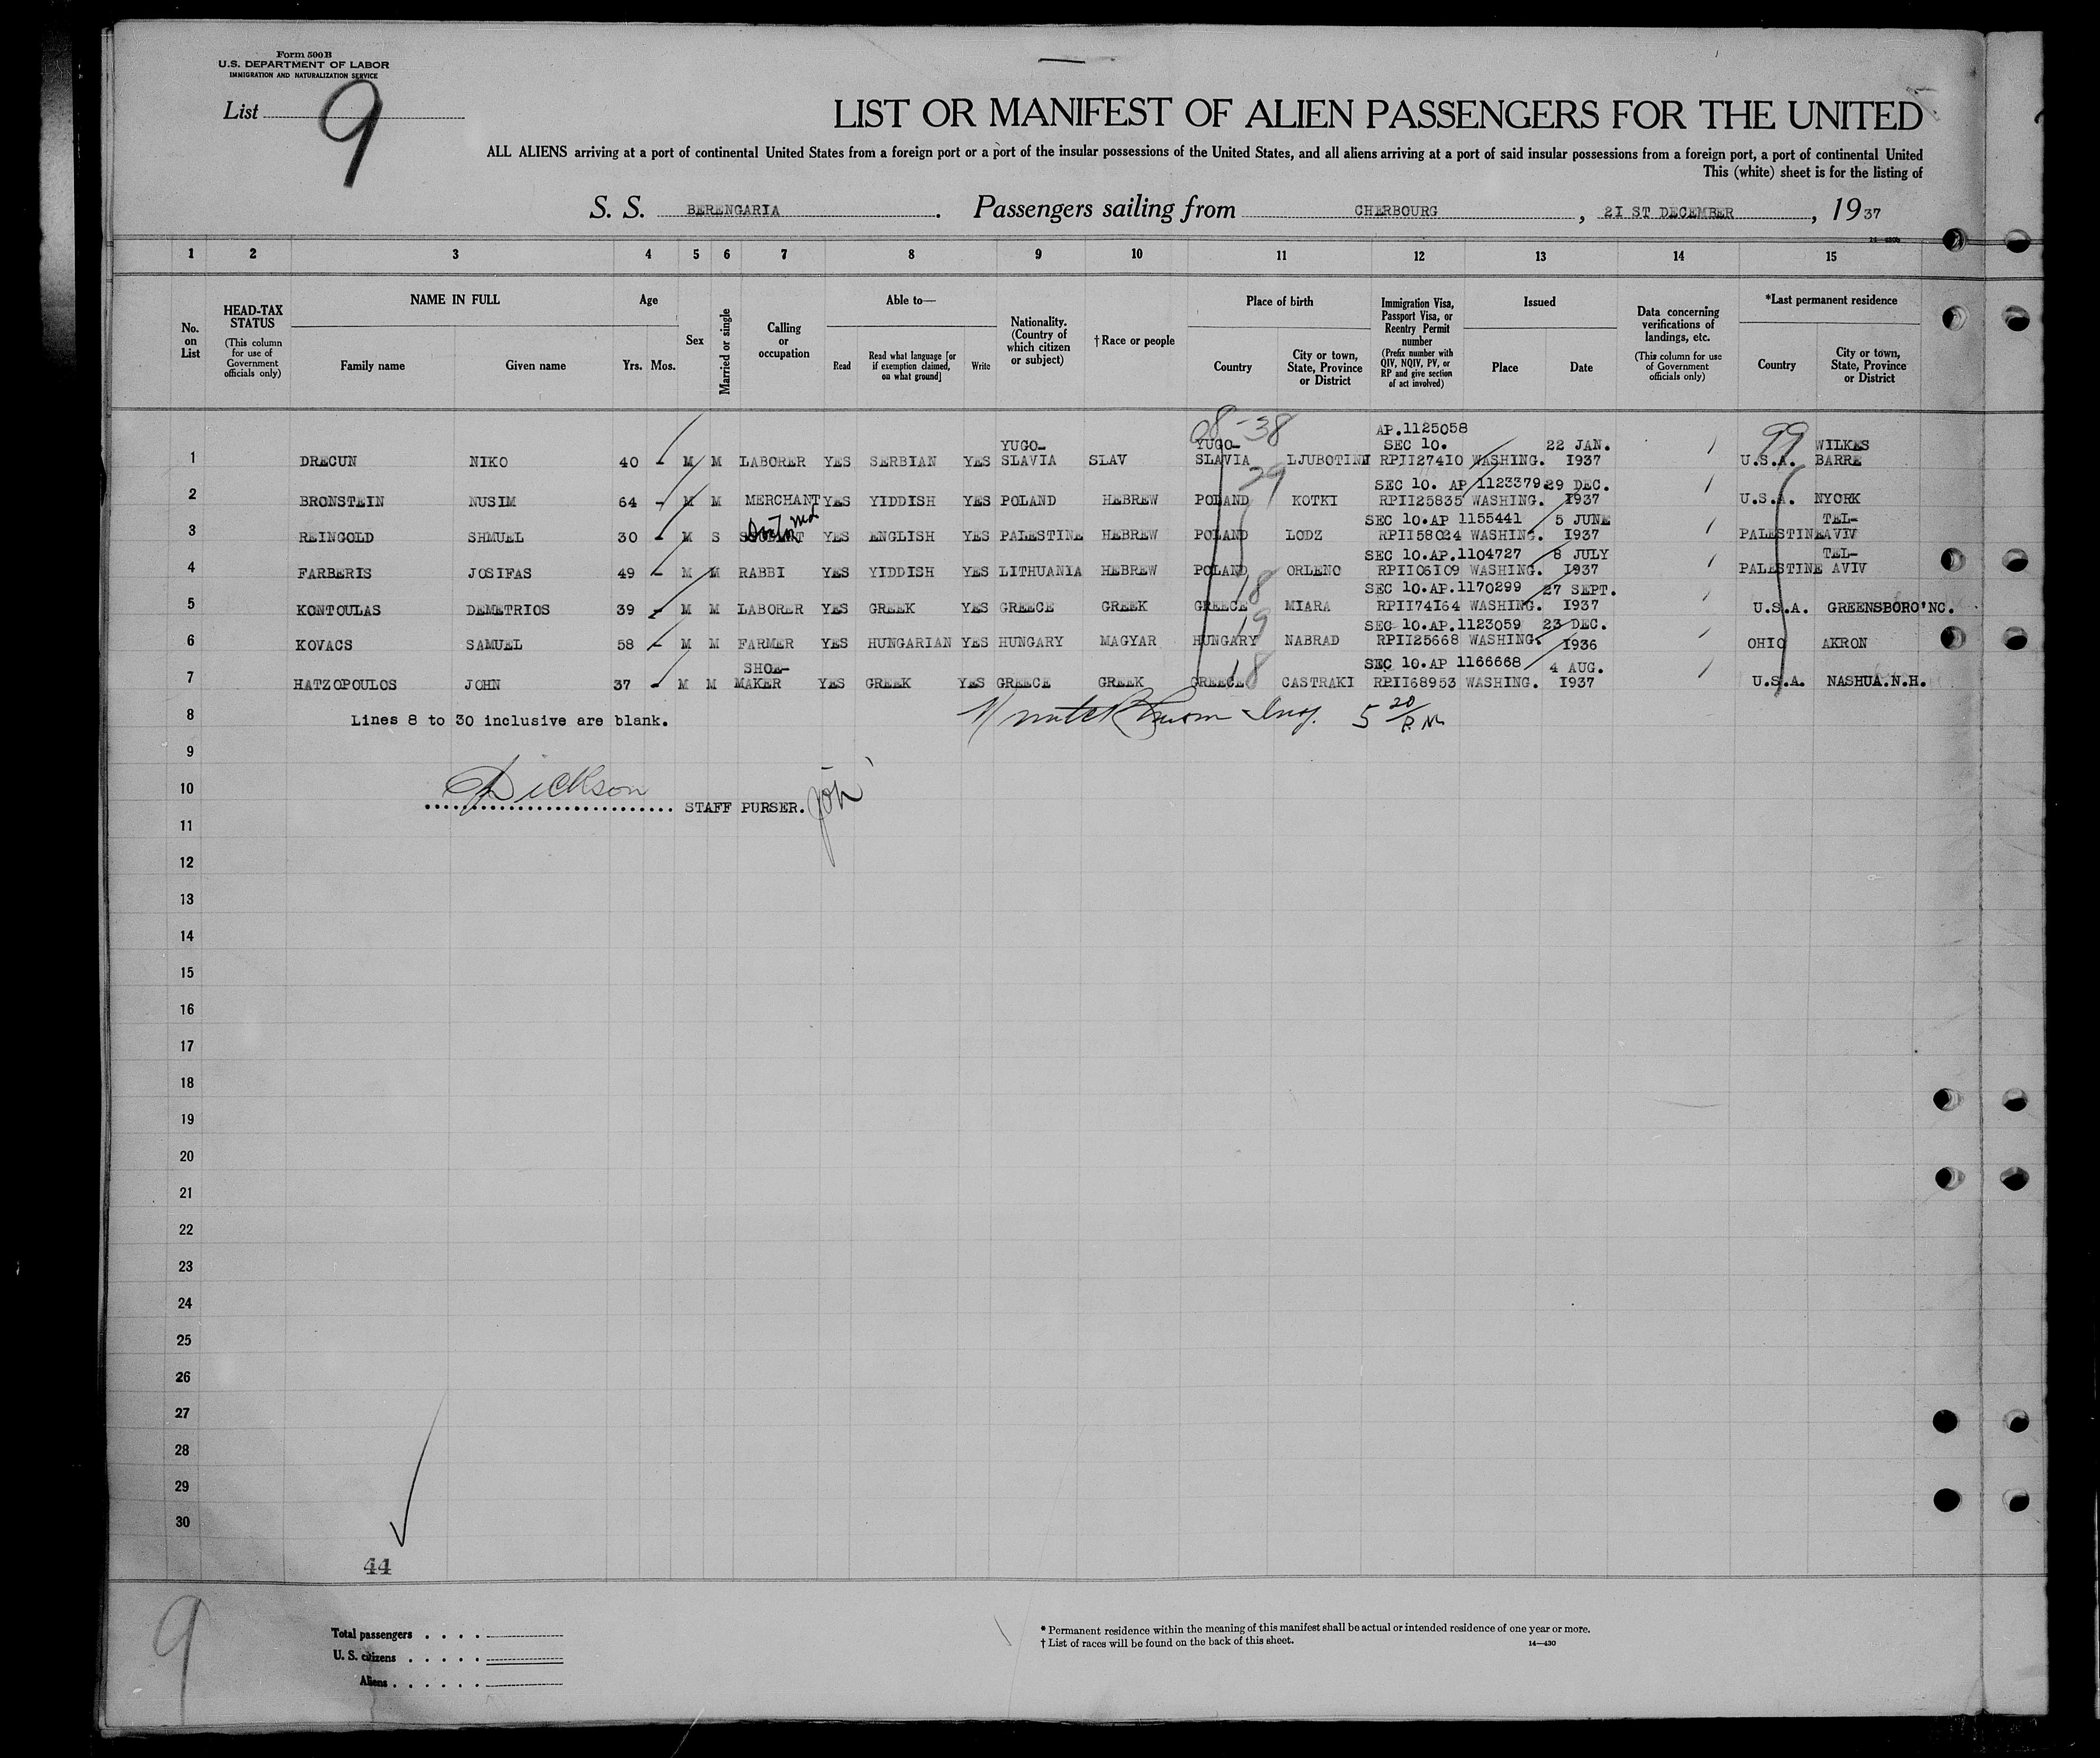 Form 500 B
U.S. DEPARTMENT OF LABOR
IMMIGRATION AND NATURALIZATION SERVICE
List 9
LIST OR MANIFEST OF ALIEN PASSENGERS FOR THE UNITED
ALL ALIENS arriving at a port of continental United States from a foreign port or a port of the insular possessions of the United States, and all aliens arriving at a port of said insular possessions from a foreign port, a port of continental United
This (white) sheet is for the listing of
S. S. BERENGARIA. Passengers sailing from CHERBOURG, 2I ST DECEMBER, 1937
1 2 3 4 5 6 7 8 9 10 11 12 13 14 15
No. on List
HEAD-TAX STATUS (This column for use of Government officials only)
NAME IN FULL
Family name Given name
Age
Yrs. Mos.
Sex
Married or single
Calling or occupation
Able to—
Read Read what language [or if exemption claimed, on what ground] Write
Nationality. (Country of which citizen or subject)
†Race or people
Place of birth
Country City or town, State, Province or District
Immigration Visa, Passport Visa, or Reentry Permit number (Prefix number with QIV, NQIV, PV, or RP and give section of act involved)
Issued
Place Date
Data concerning verifications of landings, etc. (This column for use of Government officials only)
*Last permanent residence
Country City or town, State, Province or District
08-38 AP.1125058 99
YUGO- YUGO- SEC 10. 22 JAN. WILKES
1 DRECUN NIKO 40 - M M LABORER YES SERBIAN YES SLAVIA SLAV SLAVIA LJUBOTINJ RPII27410 WASHING. I937 U.S.A. BARRE
29 SEC 10. AP 1123379 29 DEC.
2 BRONSTEIN NUSIM 64 - M M MERCHANT YES YIDDISH YES POLAND HEBREW POLAND KOTKI RPII25835 WASHING. I937 U.S.A. NYORK
SEC 10.AP 1155441 5 JUNE TEL-
3 REINGOLD SHMUEL 30 - M S YES ENGLISH YES PALESTINE HEBREW POLAND LODZ RPII58024 WASHING. I937 PALESTINE AVIV
SEC 10.AP.1104727 8 JULY TEL-
4 FARBERIS JOSIFAS 49 - M M RABBI YES YIDDISH YES LITHUANIA HEBREW POLAND ORLENO RPII06I09 WASHING. I937 PALESTINE AVIV
18 SEC 10.AP.1170299 27 SEPT.
5 KONTOULAS DEMETRIOS 39 - M M LABORER YES GREEK YES GREECE GREEK GREECE MIARA RPII74I64 WASHING. I937 U.S.A. GREENSBORO'NC.
19 SEC 10.AP.1123059 23 DEC.
6 KOVACS SAMUEL 58 - M M FARMER YES HUNGARIAN YES HUNGARY MAGYAR HUNGARY NABRAD RPII25668 WASHING. I936 OHIO AKRON
SHOE- 18 SEC 10.AP 1166668 4 AUG.
7 HATZOPOULOS JOHN 37 - M M MAKER YES GREEK YES GREECE GREEK GREECE CASTRAKI RPII68953 WASHING. I937 U.S.A. NASHUA.N.H.
8 Lines 8 to 30 inclusive are blank. 5 20 P.M
9
10 Dickson STAFF PURSER.
11
12
13
14
15
16
17
18
19
20
21
22
23
24
25
26
27
28
29
30
44
9
Total passengers
U. S. citizens
Aliens
* Permanent residence within the meaning of this manifest shall be actual or intended residence of one year or more.
† List of races will be found on the back of this sheet. 14—430